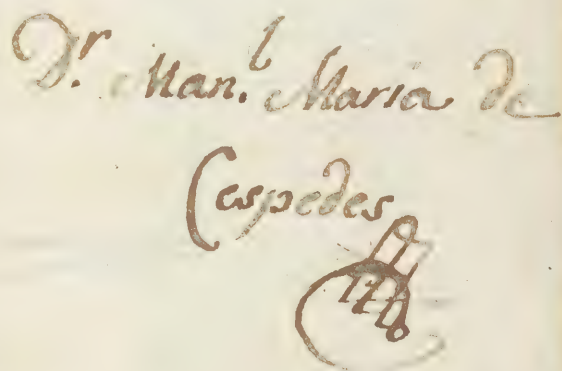 D.r Man.l Maria de
Cespedes